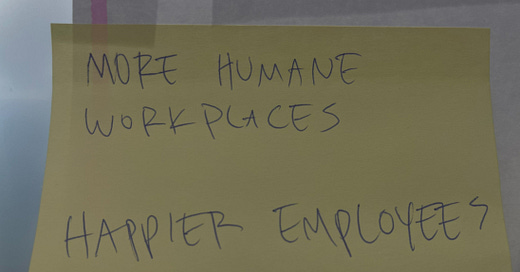 MORE HUMANE
WORKPLACES
HAPPIER EMPLOYEES